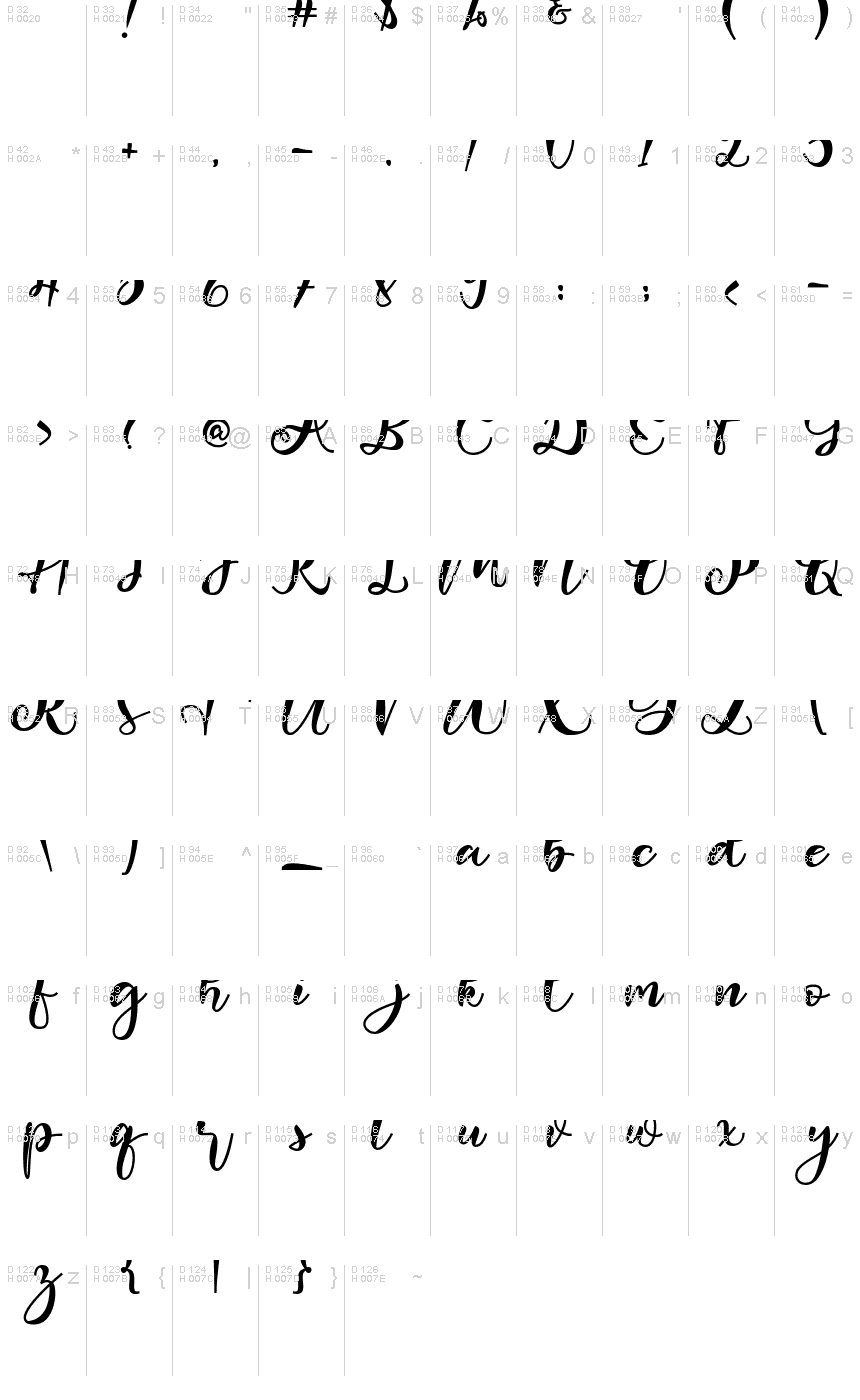 D 32 D 33 ! D 34 " D 35 # D 36 $ D 37 % D 38 & D 39 ' D 40 ( D 41 )
H 0020 H 0021 H 0022 H 0023 H 0024 H 0025 H 0026 H 0027 H 0028 H 0029
D 42 * D 43 + D 44 , D 45 - D 46 . D 47 / D 48 0 D 49 1 D 50 2 D 51 3
H 002A H 002B H 002C H 002D H 002E H 002F H 0030 H 0031 H 0032 H 0033
D 52 4 D 53 5 D 54 6 D 55 7 D 56 8 D 57 9 D 58 : D 59 ; D 60 < D 61 =
H 0034 H 0035 H 0036 H 0037 H 0038 H 0039 H 003A H 003B H 003C H 003D
D 62 > D 63 ? D 64 @ D 65 A D 66 B D 67 C D 68 D D 69 E D 70 F D 71 G
H 003E H 003F H 0040 H 0041 H 0042 H 0043 H 0044 H 0045 H 0046 H 0047
D 72 H D 73 I D 74 J D 75 K D 76 L D 77 M D 78 N D 79 O D 80 P D 81 Q
H 0048 H 0049 H 004A H 004B H 004C H 004D H 004E H 004F H 0050 H 0051
D 82 R D 83 S D 84 T D 85 U D 86 V D 87 W D 88 X D 89 Y D 90 Z D 91 [
H 0052 H 0053 H 0054 H 0055 H 0056 H 0057 H 0058 H 0059 H 005A H 005B
D 92 \ D 93 ] D 94 ^ D 95 _ D 96 ` D 97 a D 98 b D 99 c D 100 d D 101 e
H 005C H 005D H 005E H 005F H 0060 H 0061 H 0062 H 0063 H 0064 H 0065
D 102 f D 103 g D 104 h D 105 i D 106 j D 107 k D 108 l D 109 m D 110 n D 111 o
H 0066 H 0067 H 0068 H 0069 H 006A H 006B H 006C H 006D H 006E H 006F
D 112 p D 113 q D 114 r D 115 s D 116 t D 117 u D 118 v D 119 w D 120 x D 121 y
H 0070 H 0071 H 0072 H 0073 H 0074 H 0075 H 0076 H 0077 H 0078 H 0079
D 122 z D 123 { D 124 | D 125 } D 126 ~
H 007A H 007B H 007C H 007D H 007E